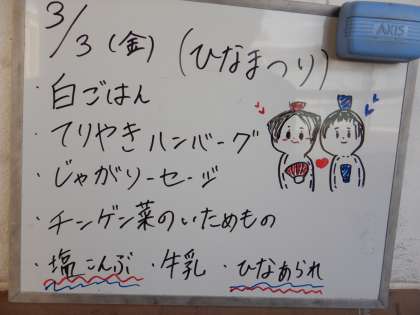 3/3(金)(ひなまつり)
・白ごはん
・てりやきハンバーグ
・じゃがリーセージ
・チンゲン菜のいためもの
・塩こんぶ ・牛乳 ・ひなあられ
AXIS